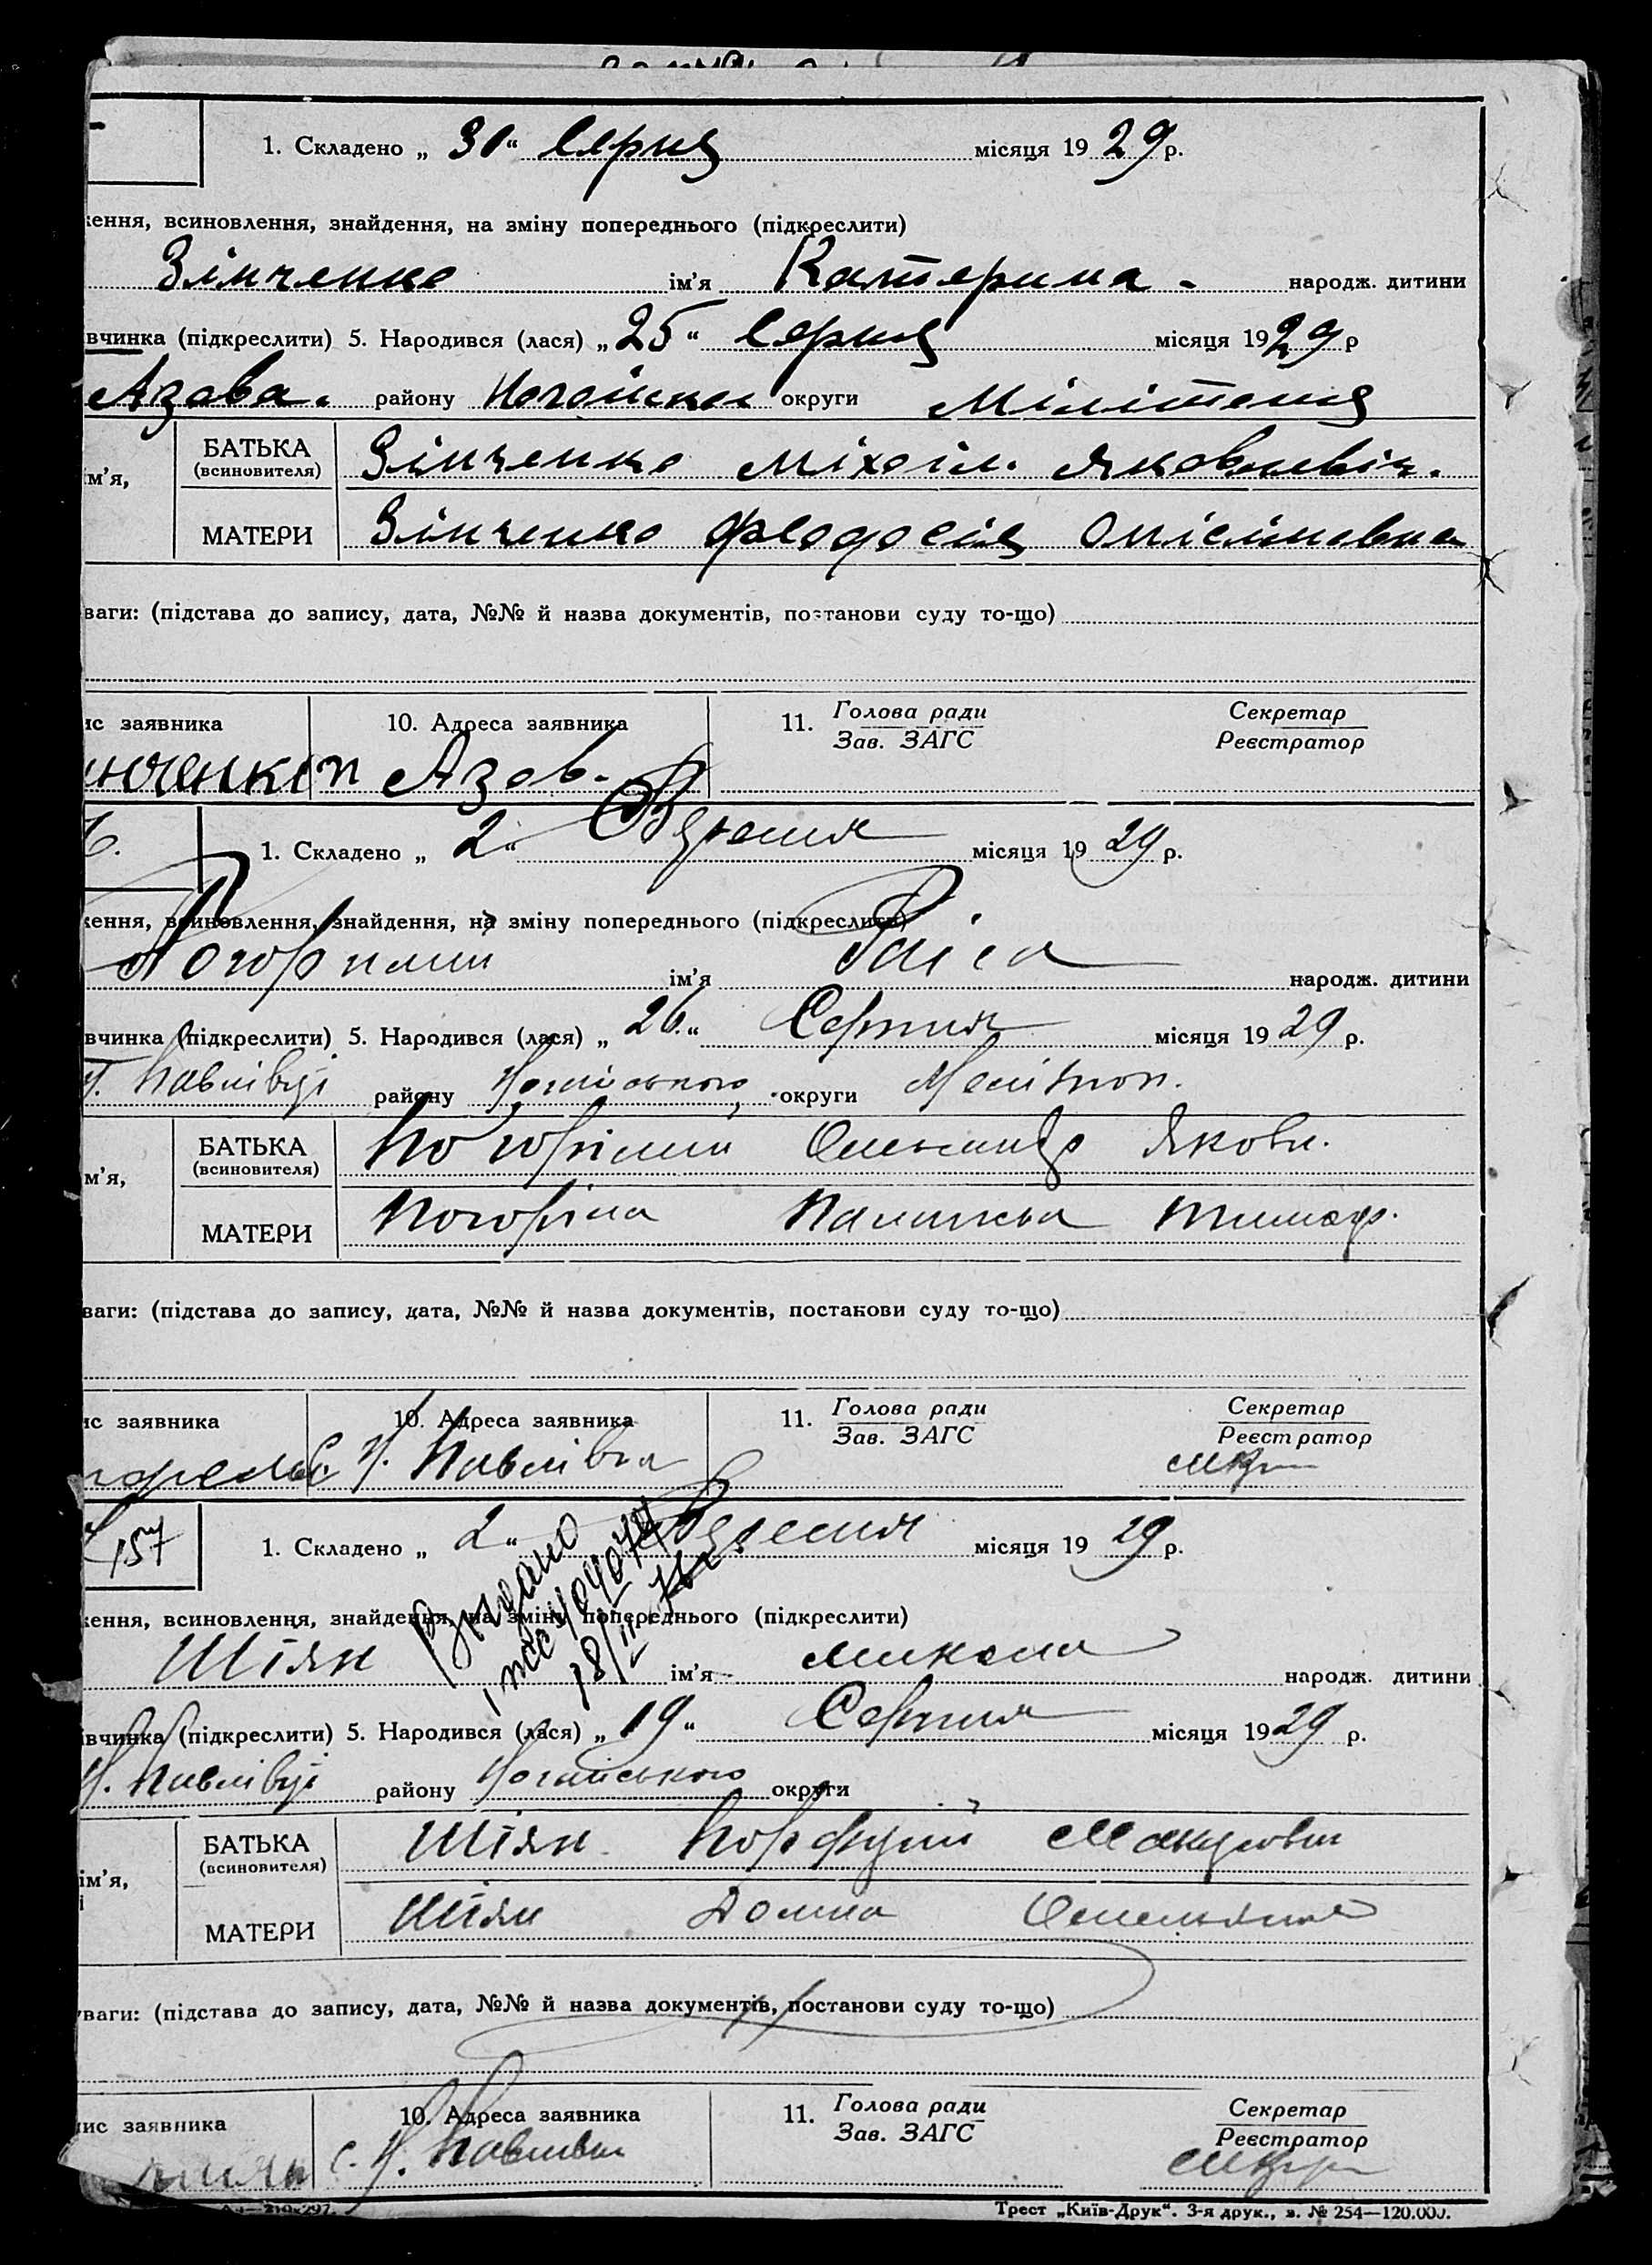 1. Складено „ 31 “ Серпц місяця 19 29 р.
ення, всиновлення, знайдення, на зміну попереднього (підкреслити)
Зінченко ім'я Катерина - народж. дитини
вчинка (підкреслити) 5. Народився (лася) „ 25 “ Серпц місяця 19 29 р
Азова. району округи
ім'я,
БАТЬКА Зінченко Міхаіл.
(всиновителя)
МАТЕРИ Зінченко Феодосія
ваги: (підстава до запису, дата, №№ й назва документів, постанови суду то-що)
ис заявника 10. Адреса заявника 11. Голова ради Секретар
Зав. ЗАГС Реєстратор
інченкоп Азов.
1. Складено „ 2 “ Вересня місяця 19 29 р.
ення, всиновлення, знайдення, на зміну попереднього (підкреслити)
ім'я Раіса народж. дитини
вчинка (підкреслити) 5. Народився (лася) „ 26. “ Серпня місяця 19 29 р.
Н. Павлівці району Ногайського округи Мелітоп.
м'я,
БАТЬКА Погорілий Олександр Яковл.
(всиновителя)
МАТЕРИ Погоріла Тимоф.
ваги: (підстава до запису, дата, №№ й назва документів, постанови суду то-що)
ис заявника 10. Адреса заявника 11. Голова ради Секретар
Зав. ЗАГС Реєстратор
С. Н. Павлівка
157
1. Складено „ 2 “ Вересня місяця 19 29 р.
Выдано
ення, всиновлення, знайдення, на зміну попереднього (підкреслити)
Шіян ім'я Микола народж. дитини
івчинка (підкреслити) 5. Народився (лася) „ 19 “ Серпня місяця 19 29 р.
Н. Павлівці району Ногайського округи
ім'я,
БАТЬКА Шіян
(всиновителя)
МАТЕРИ Шіян Домна
уваги: (підстава до запису, дата, №№ й назва документів, постанови суду то-що)
ис заявника 10. Адреса заявника 11. Голова ради Секретар
Зав. ЗАГС Реєстратор
с. Н. Павлівка
Трест „Київ-Друк“. 3-я друк., з. № 254—120.000.